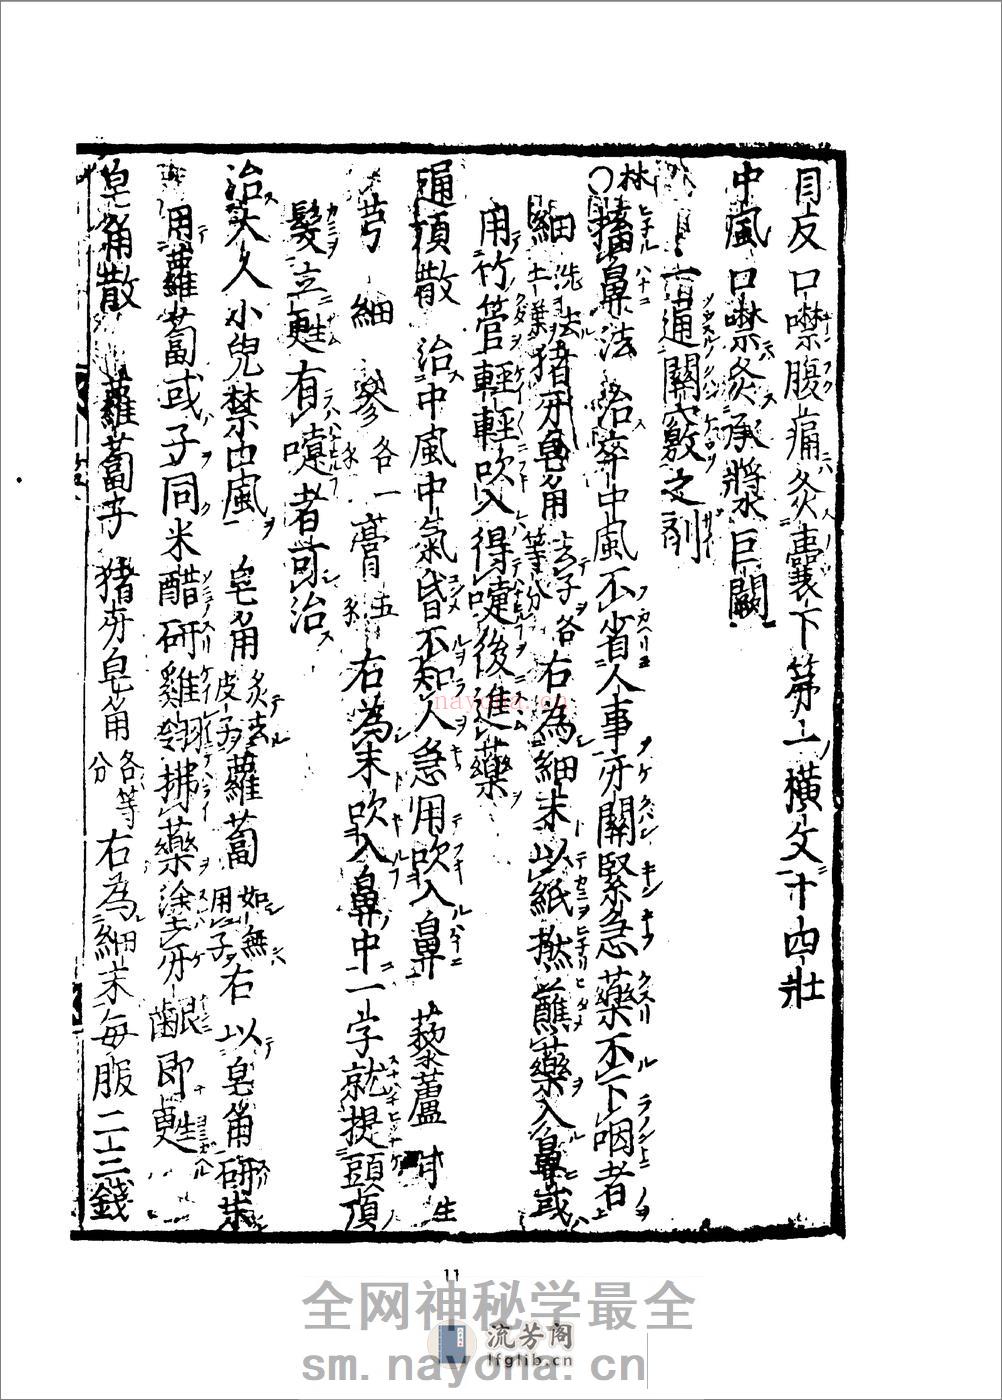 目反口噤腹痛灸囊下第一橫文十四壯
中風口噤灸承漿巨闕
一通關竅之劑
林
○搐鼻法 治卒中風不省人事牙關緊急藥不下咽者
細 洗去土 猪牙皂角 去子各等分 右為細末以紙撚蘸藥入鼻或
用竹管輕輕吹入得嚏後進藥
通頂散 治中風中氣昏不知人急用吹入鼻 藜蘆 甘 生
芎 細 參 各一 膏 五 右為末吹入鼻中一字就提頭頂
髮立甦有嚏者可治
治大人小兒禁口風 皂角 炙去皮子 蘿蔔 如無用子 右以皂角研末
用蘿蔔或子同米醋研雞翎拂藥塗牙齦即甦
皂角散 蘿蔔子 猪牙皂角 各等分 右為細末每服二三錢
11
nayona.cn
全网神秘学最全
流芳阁
lfglib.cn
sm.nayona.cn